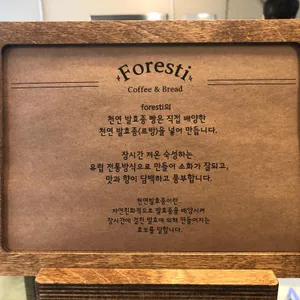 Foresti
Coffee & Bread
foresti의
천연 발효종 빵은 직접 배양한
천연 발효종(르방)을 넣어 만듭니다.
장시간 저온 숙성하는
유럽 전통방식으로 만들어 소화가 잘되고,
맛과 향이 담백하고 풍부합니다.
천연발효종이란,
자연친화적으로 발효종을 배양시켜
장시간에 걸친 발효에 의해 만들어지는
효모를 말합니다.